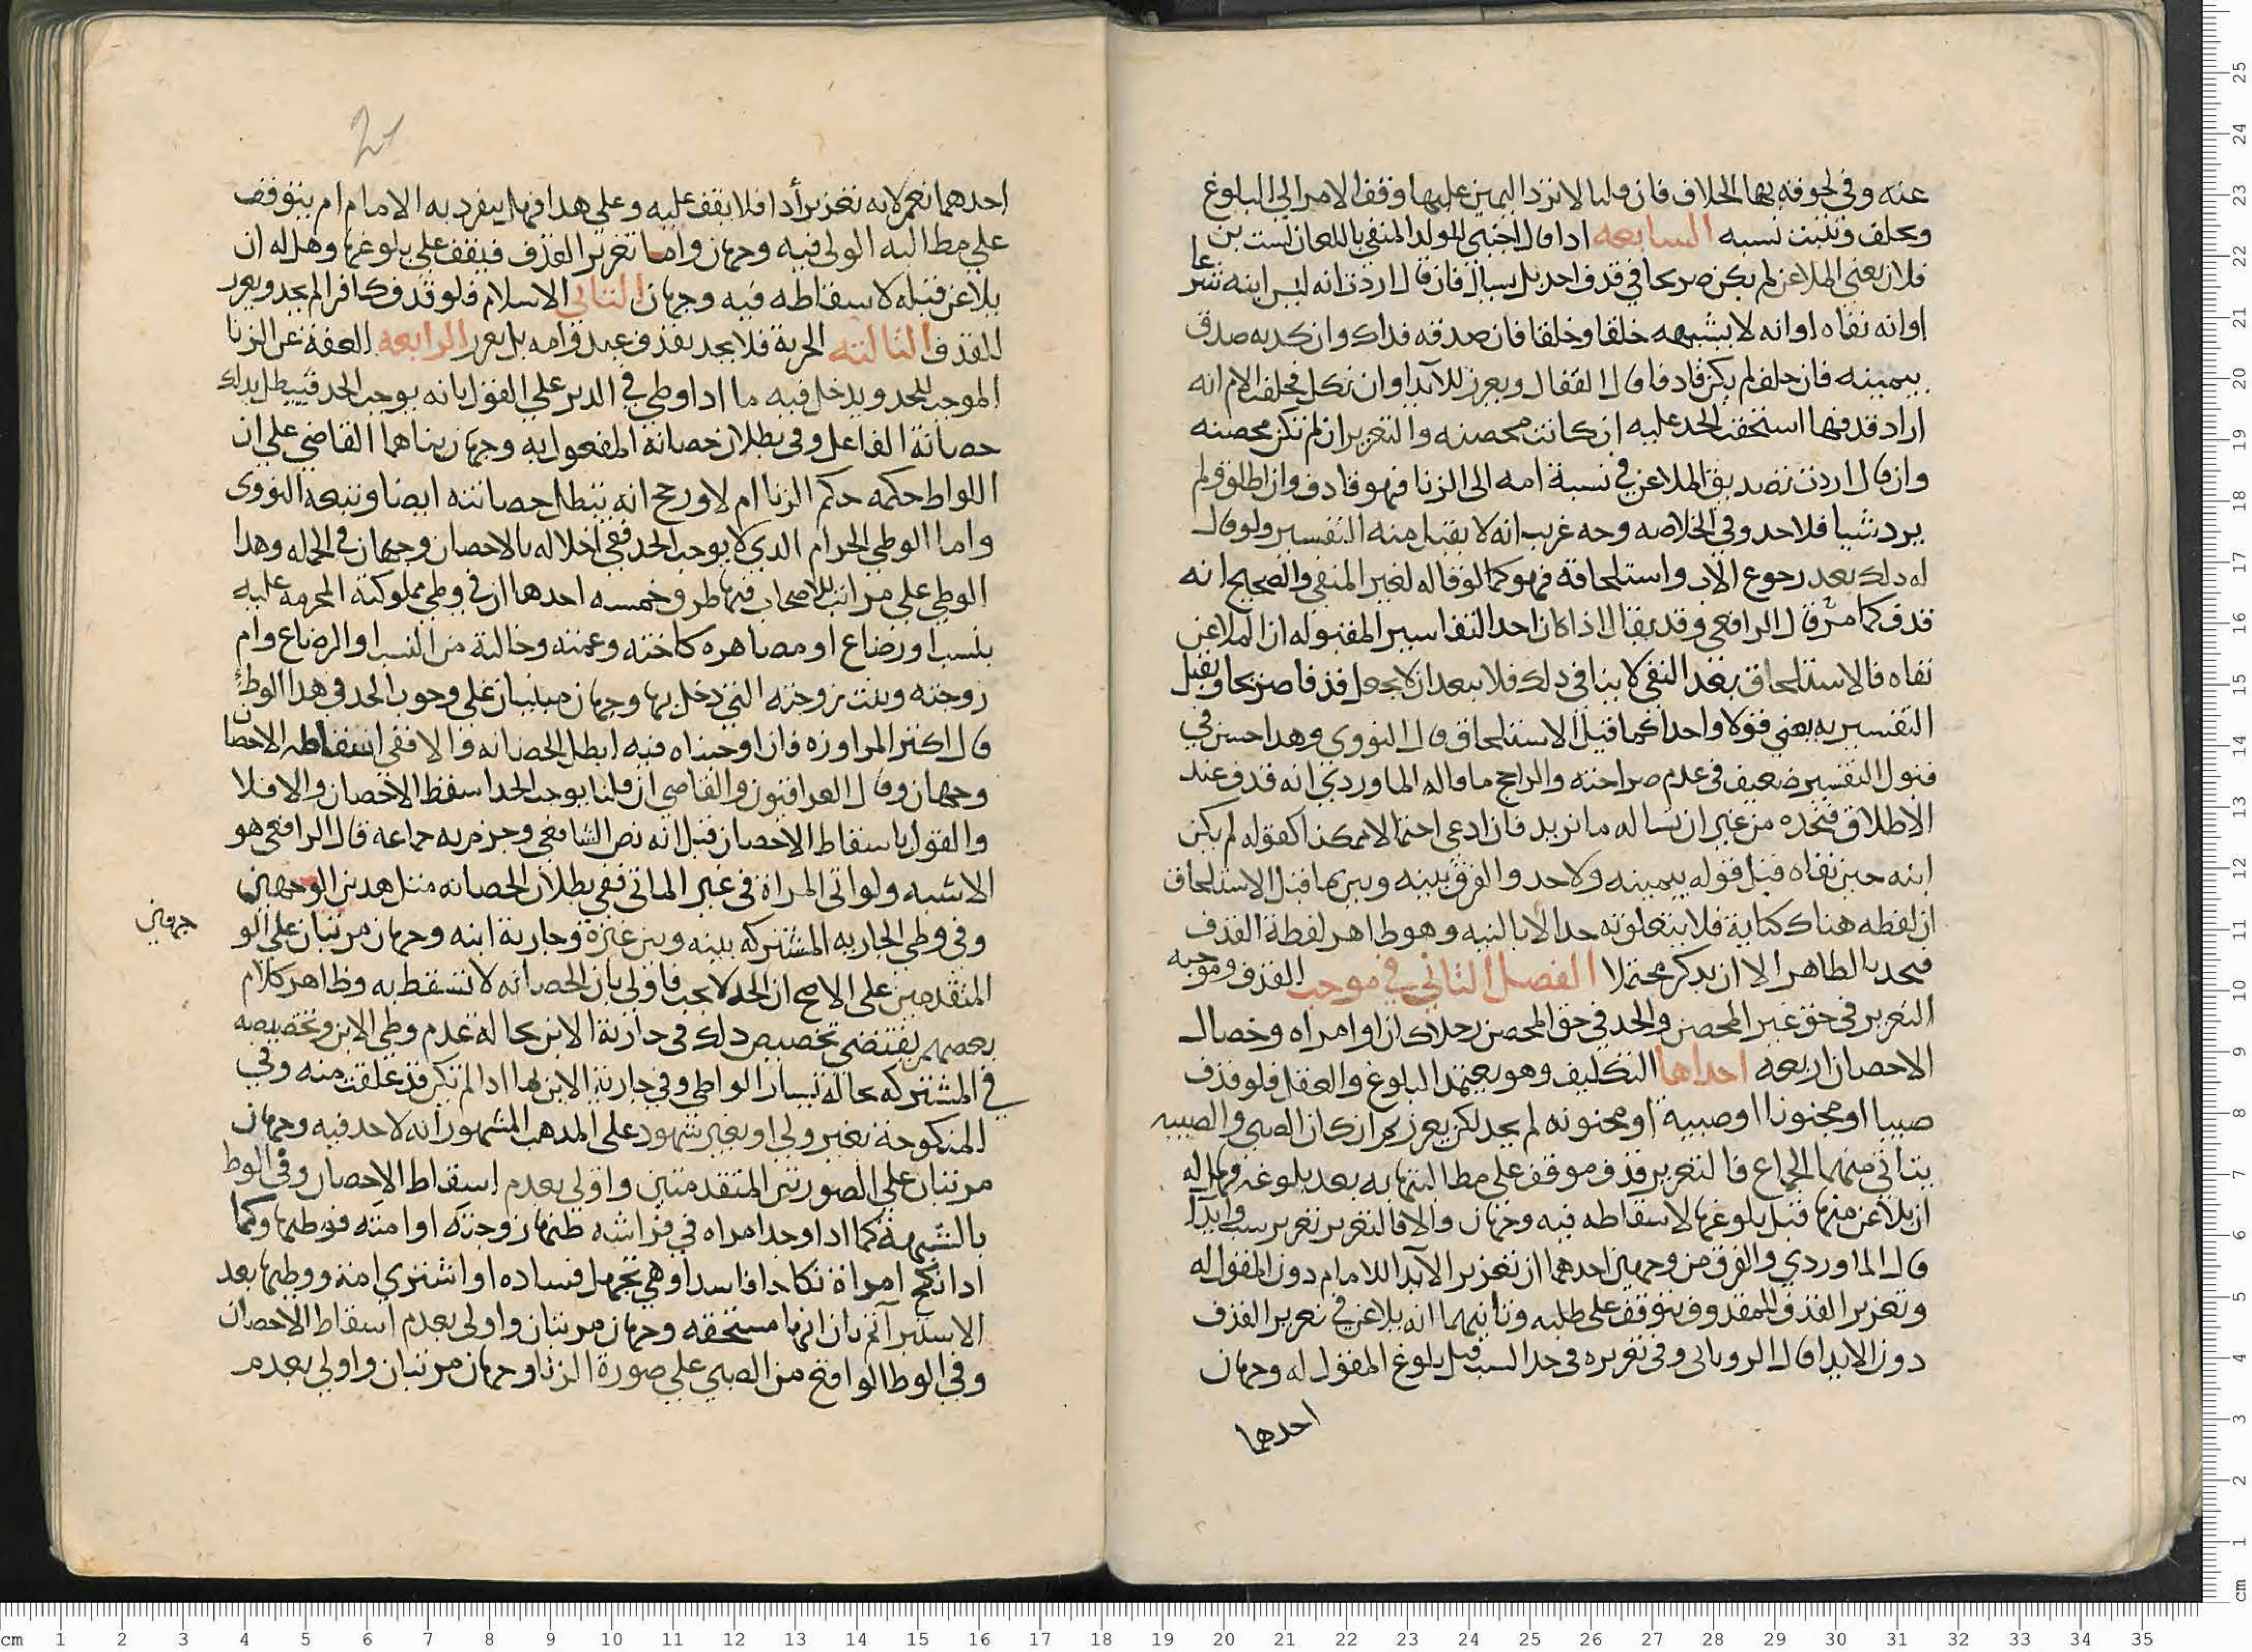 عنه وفي لحوقه بها الخلاف فان قلنا لا نرد اليمين عليها وقف الامر الي البلوغ
ويحلف ويثبت نسبه السابعه اذا قال اجنبي للولد المنفي باللعان لست بن
فلان يعني الملاعن لم يكن صريحا في قذف احد بل يسال فان قال اردت انه ليس ابنه شرعا
او انه نفاه او انه لا يشبهه خلقا وخلقا فان صدقه فذاك وان كذبه صدق
بيمينه فان حلف لم يكن قاذفا قال القفال ويعزر للايذا وان نكل فحلفت الام انه
اراد قذفها استحقت الحد عليه ان كانت محصنه والتعزير ان لم تكن محصنه
وان قال اردت تصديق الملاعن في نسبة امه الى الزنا فهو قاذف وان اطلق ولم
يرد شيا فلا حد وفي الخلاصه وجه غريب انه لا يقبل منه التفسير ولو قال
له ذلك بعد رجوع الاب واستلحاقه فهو كما لو قاله لغير المنفي والصحيح انه
قذف كما مر قال الرافعي وقد يقال اذا كان احد التفاسير المقبوله ان الملاعن
نفاه فالاستلحاق بعد النفي لا ينافي ذلك فلا يبعد ان لا يجعل قذفا صريحا ويقبل
التفسير به يعني قولا واحدا كما قبل الاستلحاق قال النووي وهذا حسن في
قبول التفسير ضعيف في عدم صراحته والراجح ما قاله الماوردي انه قذف عند
الاطلاق فنحده من غير ان نساله ما تريد فان ادعي احتمالا ممكنا كقوله لم يكن
ابنه حين نفاه قبل قوله بيمينه ولا حد والفرق بينه وبين ما قبل الاستلحاق
ان لفظه هناك كناية فلا يتعلق به حد الا بالنيه وهو ظاهر لفظة القذف
فيحد بالظاهر الا ان يذكر محتملا الفصل الثاني في موجب القذف وموجبه
التعزير في حق غير المحصن والحد في حق المحصن رجلا كان او امراه وخصال
الاحصان اربعه احداها التكليف وهو يعتمد البلوغ والعقل فلو قذف
صبيا او مجنونا او صبية او مجنونه لم يحد لكن يعزر ثم ان كان الصبي والصبيه
يتاتي منهما الجماع فالتعزير قذف موقف على مطالبتهما به بعد بلوغه فهل له
ان يلاعن منها قبل بلوغها لاسقاطه فيه وجهان والا فالتعزير تعزير سب وايذا
قال الماوردي والفرق من وجهين احدهما ان تعزير الايذا للامام دون المقول له
وتعزير القذف للمقذوف يتوقف على طلبه وثانيهما انه يلاعن في تعزير القذف
دون الايذا قال الروياني وفي تعزيره في حد السب قبل بلوغ المقول له وجهان
احدهما
احدهما نعم لانه تعزير أذا فلا يقف عليه وعلى هذا فهل ينفرد به الامام ام يتوقف
علي مطالبه الولي فيه وجهان واما تعزير القذف فيقف علي بلوغها وهل له ان
يلاعن قبله لاسقاطه فيه وجهان الثاني الاسلام فلو قذف كافرا لم يحد ويعزر
للقذف الثالثه الحرية فلا يحد بقذف عبد وامه بل يعزر الرابعه العفة عن الزنا
الموجب للحد ويدخل فيه ما اذا وطي في الدبر علي القول بانه يوجب الحد فيبطل بذلك
حصانة الفاعل وفي بطلان حصانه المفعول به وجهان بناهما القاضي على ان
اللواط حكمه حكم الزنا ام لا ورجح انه تبطل حصانته ايضا وتبعه النووى
واما الوطي الحرام الذي لا يوجب الحد ففي اخلاله بالاحصان وجهان في الجمله وهذا
الوطي علي مراتب للاصحاب فيها طرق خمسه احدها ان في وطي مملوكته المحرمه عليه
بنسب او رضاع او مصاهره كاخته وعمته وخالته من النسب او الرضاع وام
زوجته وبنت زوجته التي دخل بها وجهان مبنيان علي وجوب الحد في هذا الوطئ
قال اكثر المراوزه فان اوجبناه فيه ابطل الحصانه والا ففي اسقاطه الاحصان
وجهان وقال العراقيون والقاضي ان قلنا يوجب الحد اسقط الاحصان والا فلا
والقول باسقاط الاحصان قيل انه نص الشافعي وجزم به جماعه قال الرافعي هو
الاشبه ولو اتي المراة في غير الماتي ففي بطلان الحصانه مثل هذين الوجهين
وفي وطي الجاريه المشتركه بينه وبين غيره وجارية ابنه وجهان مرتبان علي الو
جهين
المتقدمين على الاصح ان الحد لا يجب فاولي بان الحصانه لا تسقط به وظاهر كلام
بعضهم يقتضي تخصيص ذلك في جارية الابن بحالة عدم وطي الابن وتخصيصه
في المشتركه بحالة يسار الواطي وفي جارية الابن بها اذا لم تكن قد علقت منه وفي
المنكوحة بغير ولي او بغير شهود على المذهب المشهور انه لا حد فيه وجهان
مرتبان علي الصورتين المتقدمتين واولي بعدم اسقاط الاحصان وفي الوط
بالشبهة كما اذا وجد امراه في فراشه ظنها زوجته او امته فوطيها وكما
اذا نكح امراة نكاحا فاسدا وهي تجهل فساده او اشتري امة ووطيها بعد
الاستبرا ثم بان انها مستحقه وجهان مرتبان واولى بعدم اسقاط الاحصان
وفي الوط الواقع من الصبي علي صورة الزنا وجهان مرتبان واولي بعدم